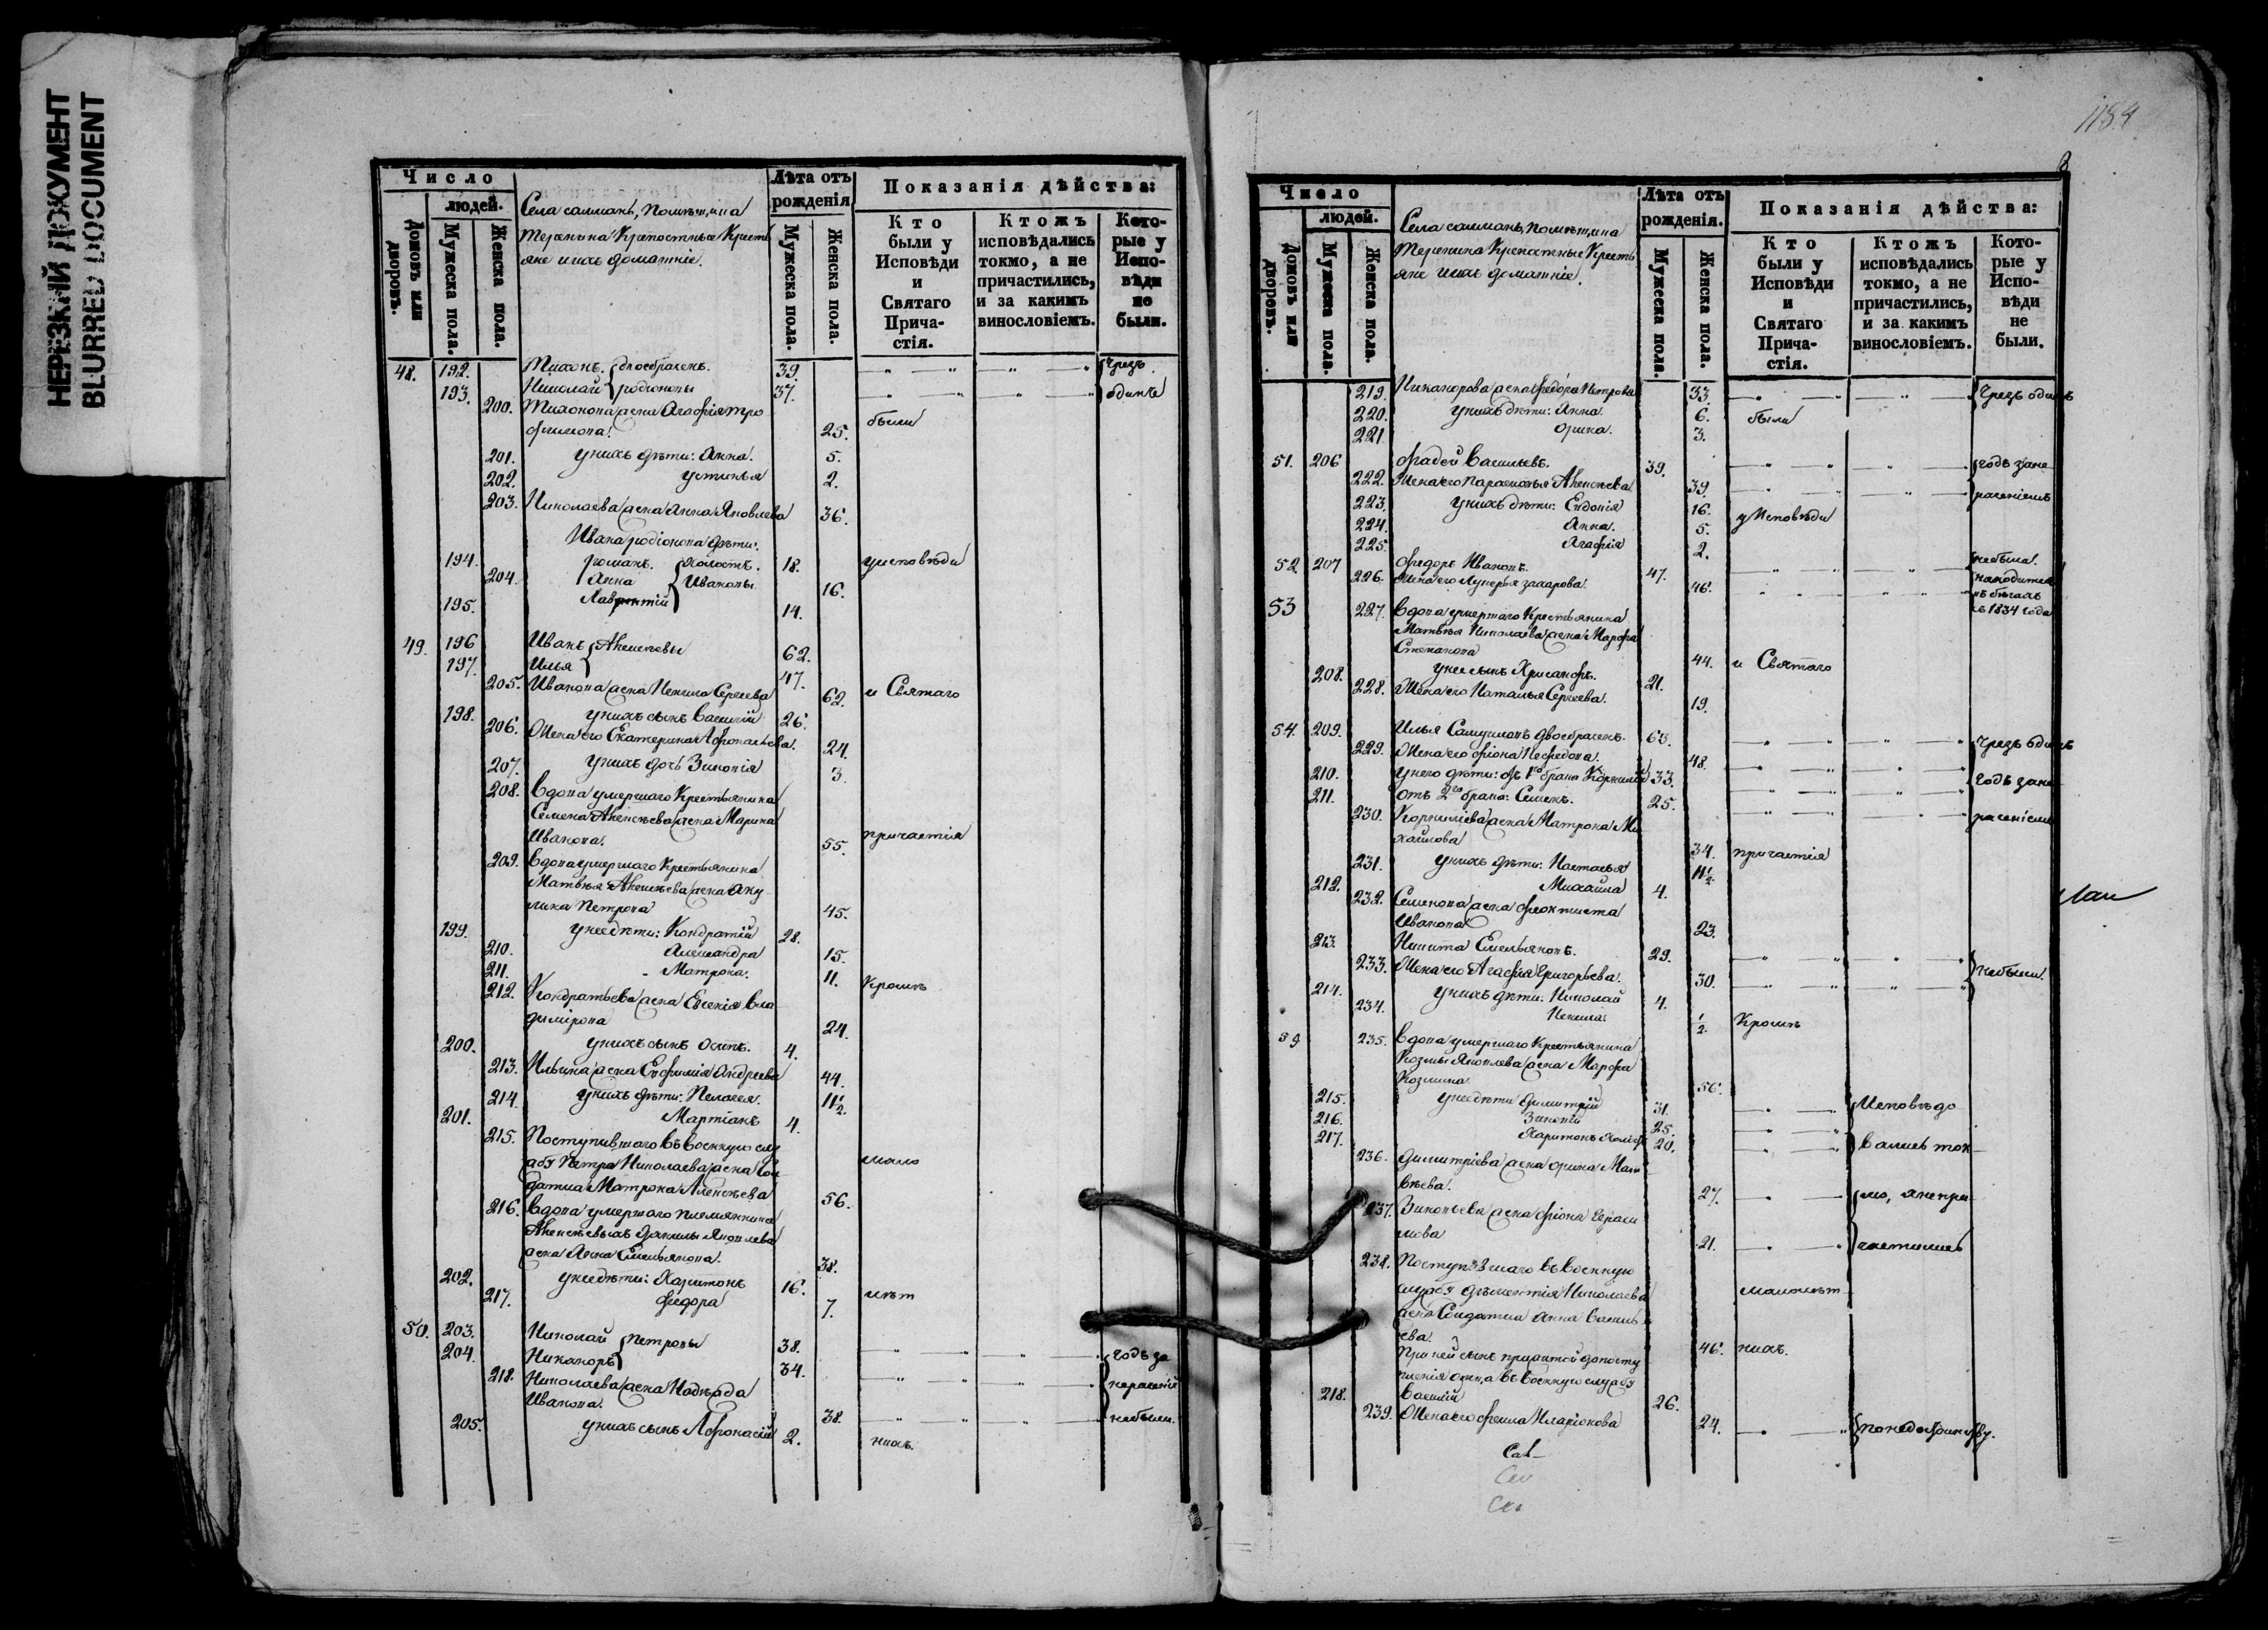 НЕРЕЗКИЙ ДОКУМЕНТ
BLURRED DOCUMENT
Число
людей.
Домовъ или дворовъ.
Мужеска пола.
Женска пола.
Села
Крепостные Кресть
яне ихъ домашніе.
Лѣта отъ рожденія
Мужеска пола.
Женска пола.
Показанія дѣйства:
Кто были у Исповѣди и Святаго Прича-стія.
Ктожъ исповѣдались токмо, а не причастились, и за какимъ винословіемъ.
Кото-рые у Испо-вѣди не были.
48. 192. Тихонъ. 39. Чрезъ
193. Николай Родіоновы 37.
200. Тихонова жена Агафія Тро
фимова. 25. были
201. у нихъ дѣти: Анна. 5.
202. Устинья 2.
203. Николаева жена Анна Яковлева 36.
Ивана Родіонова дѣти:
194. Романъ. холостъ. 18. у исповѣди
204. Анна Ивановы 16.
195. Лаврентій 14.
49. 196 Иванъ Алексѣевы 62.
197. Илья 47.
205. Иванова жена Сергеева 62. и Святаго
198. у нихъ сынъ Василій 26.
206. Жена его Екатерина Афонасьева. 24.
207. у нихъ дочь Зиновія 3.
208. Вдова умершаго Крестьянина
Семена Алексѣева жена Марина
Иванова. 55. причастія
209. Вдова умершаго Крестьянина
Матвѣя Алексѣева жена Аку
лина Петрова 45.
199. у нее дѣти: Кондратій 28.
210. Александра 15.
211. Матрона. 11. Кромѣ
212. Кондратьева жена Евгенія Вла
димірова 24.
200. у нихъ сынъ Осипъ. 4.
213. Ильина жена Евфимія Андреева 44.
214. у нихъ дѣти: Пелагея. 11½
201. Мартіанъ 4.
215. Поступившаго въ военную слу
жбу Петра Николаева жена Сол
датка Матрона Алексѣева 56. мало
216. Вдова умершаго племянника
Алексѣевыхъ Яковлева
жена Анна Емельянова. 38.
202. у нее дѣти: Харитонъ 16. лѣт
217. Федора 7.
50. 203. Николай Петровы 38.
204. Никаноръ 34. годъ за
218. Николаева жена Надежда
Иванова. 38. небыли.
205. у нихъ сынъ Афонасій 2. нихъ.
1184
8
Число
людей.
Домовъ или дворовъ.
Мужеска пола.
Женска пола.
Села
Крепостные Кресть
яне ихъ домашніе.
Лѣта отъ рожденія.
Мужеска пола.
Женска пола.
Показанія дѣйства:
Кто были у Исповѣди и Святаго Прича-стія.
Ктожъ исповѣдались токмо, а не причастились, и за какимъ винословіемъ.
Кото-рые у Испо-вѣди не были.
219. Никанорова жена Федора Петрова 33. Чрезъ одинъ
220. у нихъ дѣти: Анна. 6. были
221. Орина. 3.
51. 206 Фадей Васильевъ. 39. годъ за не
222. Жена его Парасковья Алексѣева 39. раченіемъ
223. у нихъ дѣти: Евдокія 16. у Исповѣди
224. Анна. 5.
225. Агафія 2.
52 207 Федоръ Ивановъ. 47. небыли.
226. Жена его Лукерья Захарова. 46. находится
въ бѣгахъ
съ 1834 года
53 227. Вдова умершаго Крестьянина
Матвѣя Николаева жена Марфа
Степанова 44. и Святаго
208. у нее сынъ Хрисанфъ. 21.
228. Жена его Наталья Сергеева. 19.
54. 209. Илья двоебраченъ. 63. Чрезъ одинъ
229. Жена его Нефедова. 48.
210. у него дѣти: отъ 1го брака Корнилій 33. годъ за не
211. отъ 2го брака: Семенъ. 25.
230. Корниліева жена Матрона Ми
хайлова 34. причастія раченіемъ
231. у нихъ дѣти: Настасья 11½
212. Михайла 4.
232. Семенова жена Феоктиста
Иванова 23.
213. Никита Емельяновъ. 29.
233. Жена его Агафія Григорьева. 30. небыли.
214. у нихъ дѣти: Николай 4.
234. ½ Кромѣ
59 235. Вдова умершаго Крестьянина
Козмы Яковлева жена Марфа
Козмина. 56.
215. у нее дѣти Димитрій 31. Исповѣдо
216. Зиновій 25.
217. Харитонъ 20. вались ток
236. Димитріева жена Орина Мат
вѣева. 27. мо, а не при
237. Зиновьева жена Гераси
мова 21. частились
238. Поступившаго въ военную
службу Николаева
жена Солдатка Анна Василь
ева. 46. нихъ.
218. Василій 26.
239. Жена его Иларіонова 24.